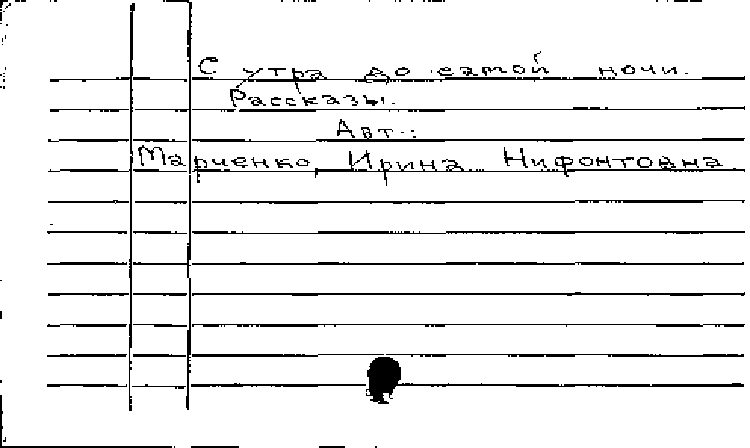 С утра до самой ночи.
Рассказы.
Авт.:
Марченко, Ирина Нифонтовна